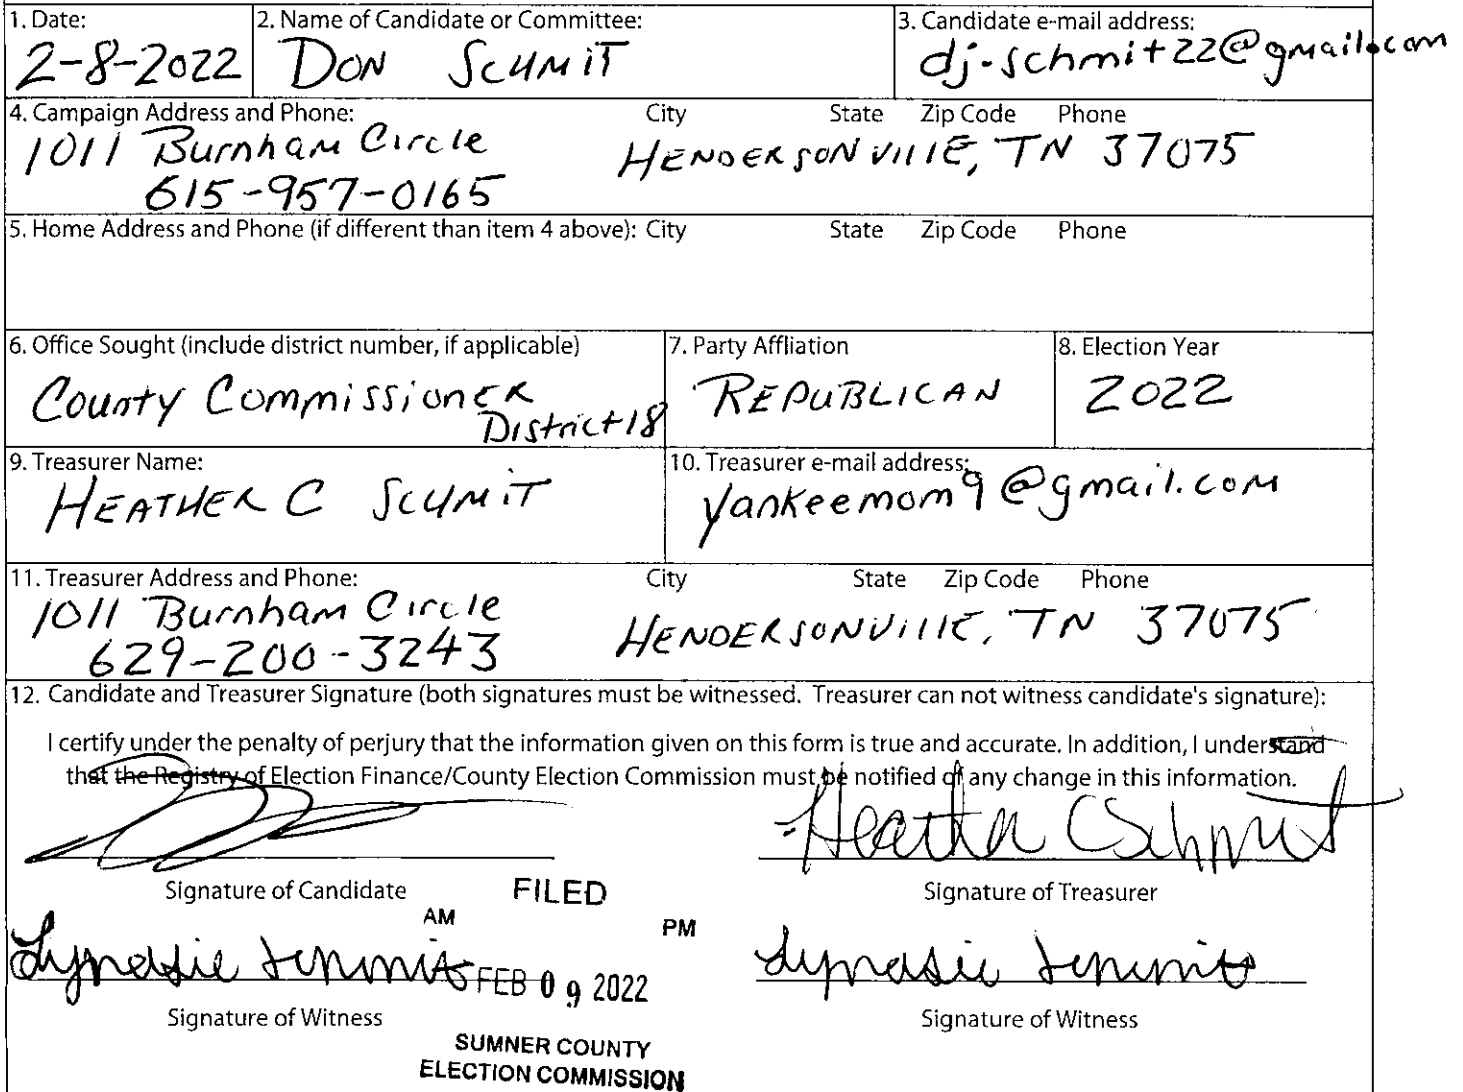 1. Date:
2-8-2022
2. Name of Candidate or Committee:
DON SCHMIT
3. Candidate e-mail address:
dj-schmit22@gmail.com
4. Campaign Address and Phone: City State Zip Code Phone
1011 Burnham Circle HENDERSONVILLE, TN 37075
615-957-0165
5. Home Address and Phone (if different than item 4 above): City State Zip Code Phone
6. Office Sought (include district number, if applicable)
County Commissioner
District 18
7. Party Affliation
REPUBLICAN
8. Election Year
2022
9. Treasurer Name:
HEATHER C SCHMIT
10. Treasurer e-mail address:
yankeemom9@gmail.com
11. Treasurer Address and Phone: City State Zip Code Phone
1011 Burnham Circle HENDERSONVILLE, TN 37075
629-200-3243
12. Candidate and Treasurer Signature (both signatures must be witnessed. Treasurer can not witness candidate's signature):
I certify under the penalty of perjury that the information given on this form is true and accurate. In addition, I understand
that the Registry of Election Finance/County Election Commission must be notified of any change in this information.
Heather C Schmit
Signature of Candidate
Signature of Treasurer
FILED
AM PM
FEB 09 2022
Signature of Witness
Signature of Witness
SUMNER COUNTY
ELECTION COMMISSION